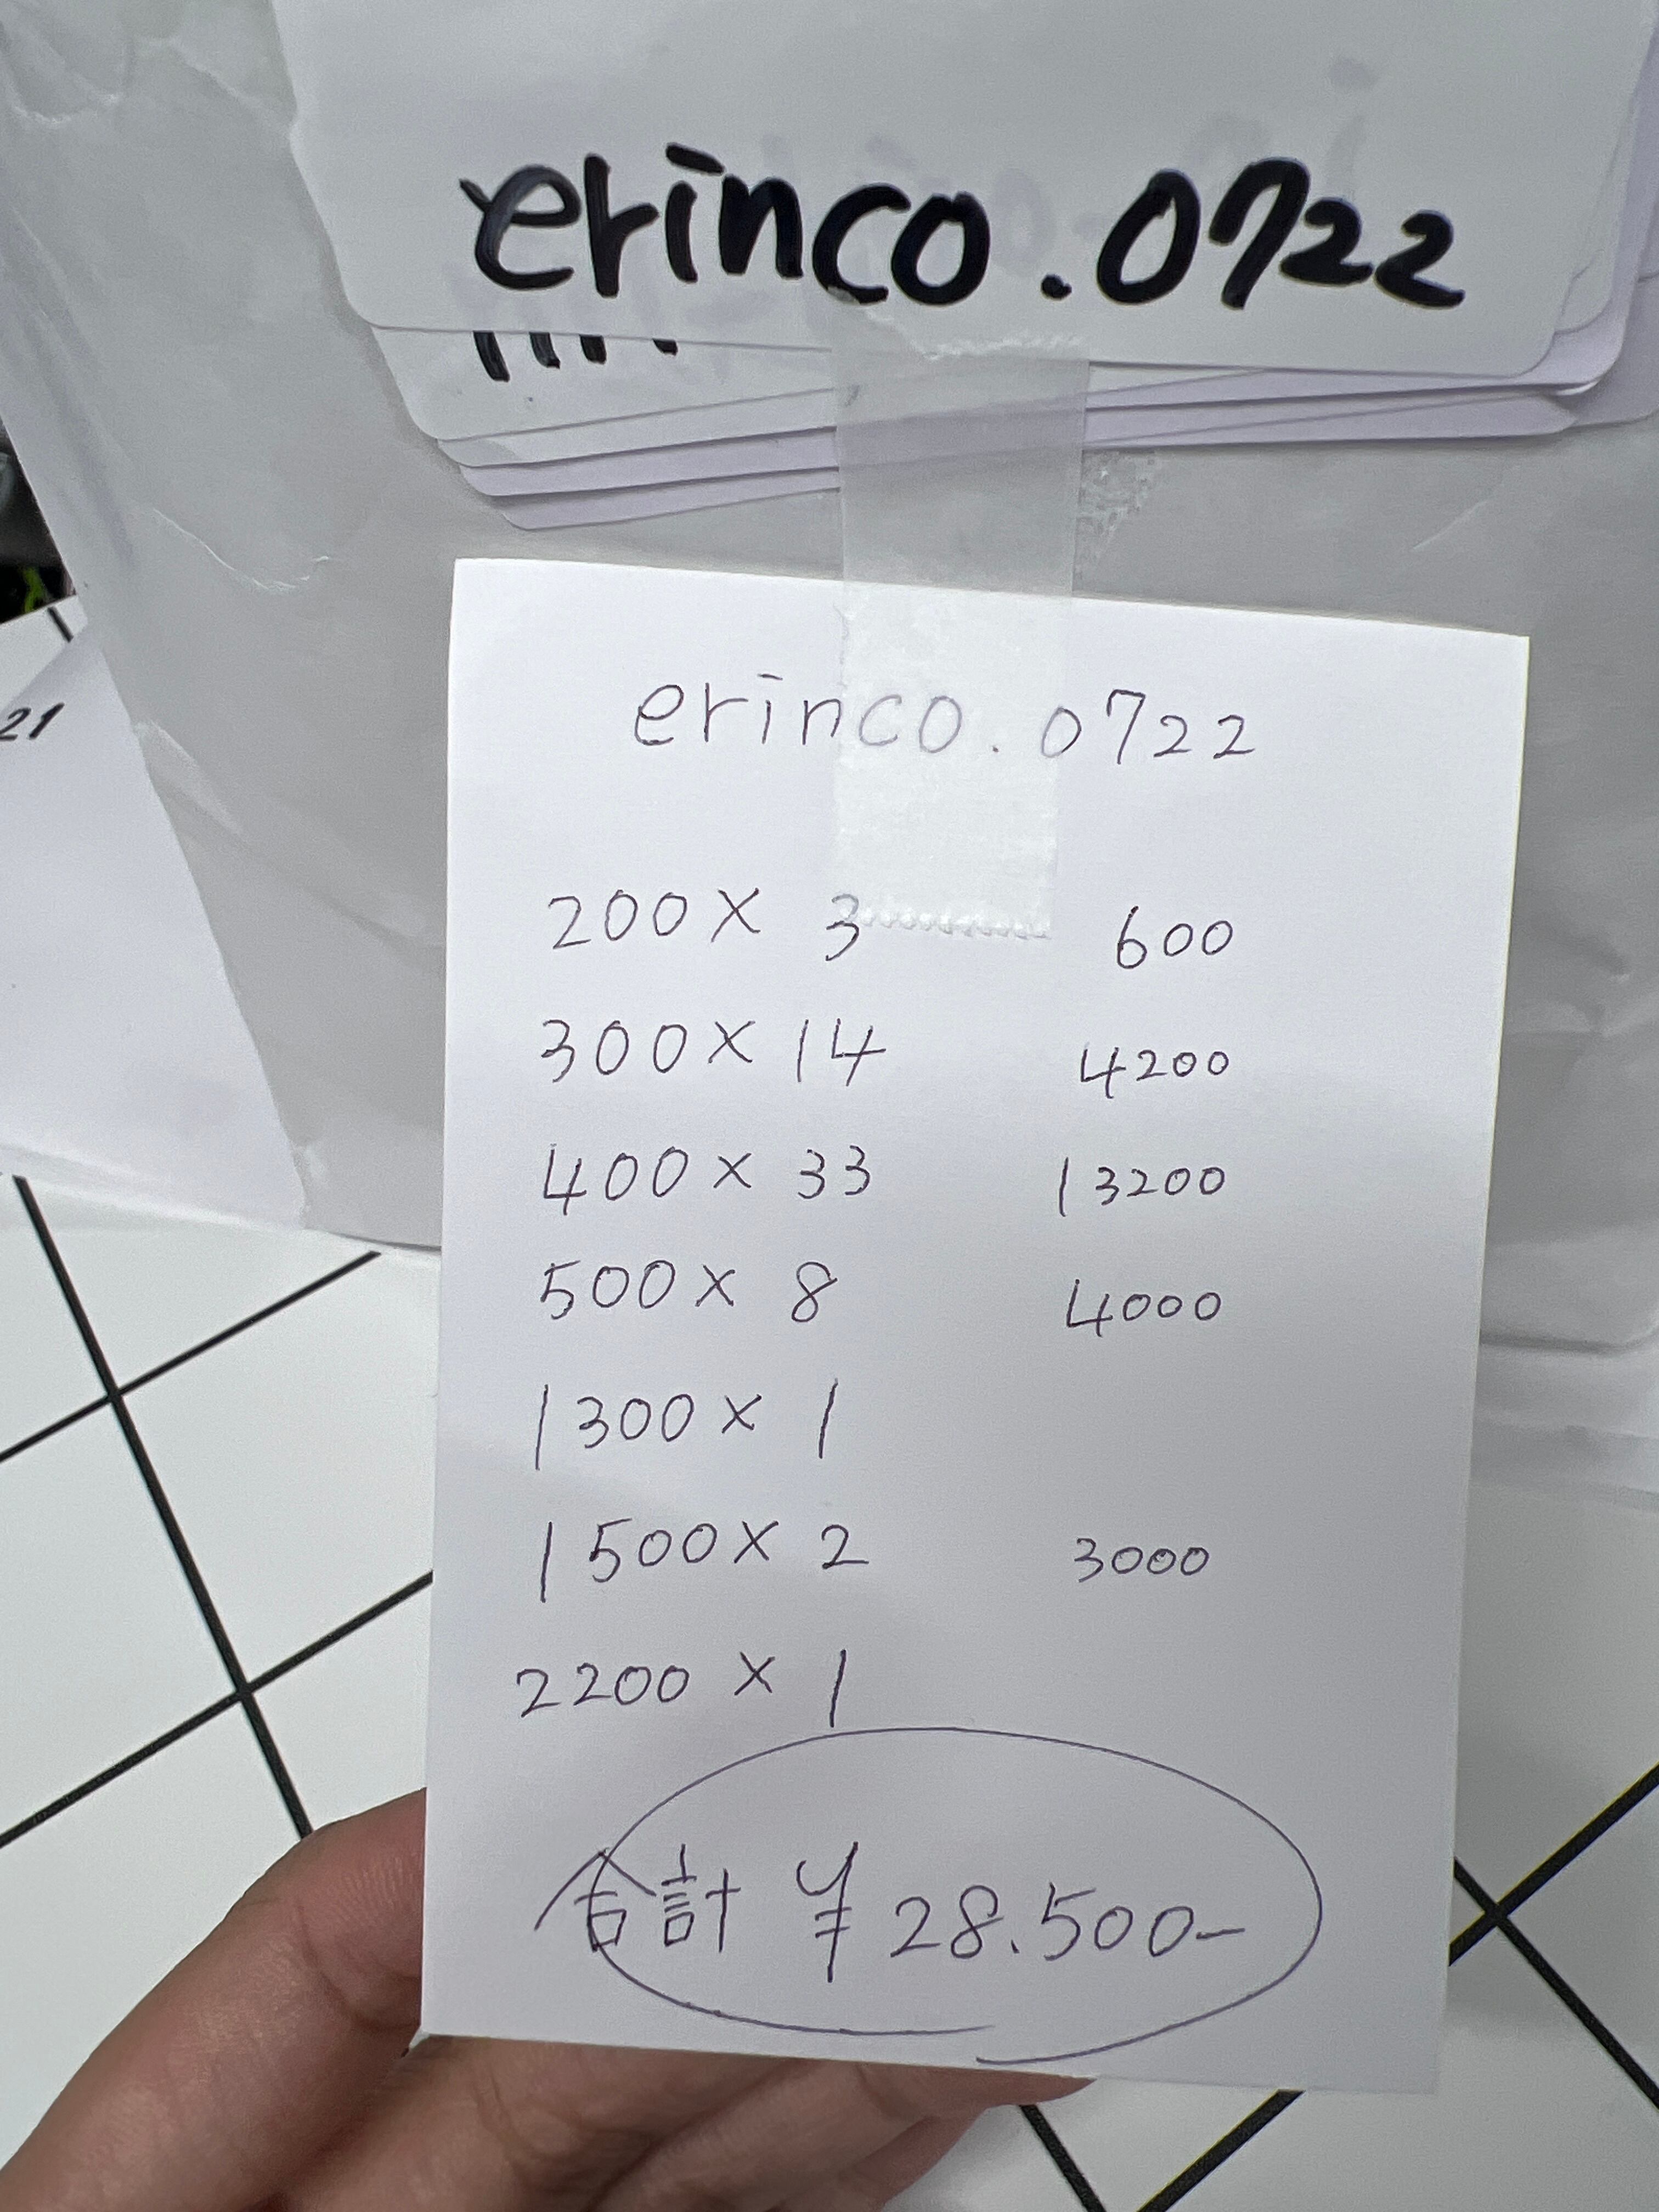 erinco.0722
21
erinco.0722
200× 3 600
300× 14 4200
400× 33 13200
500× 8 4000
1300× 1
1500× 2 3000
2200 × 1
合計 ¥28.500-